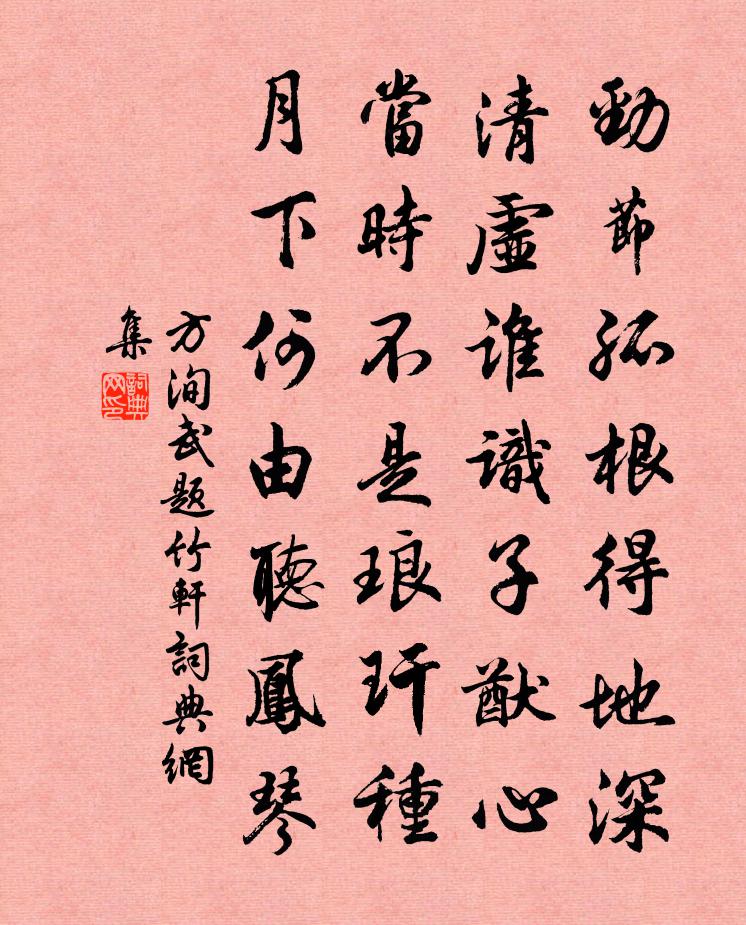 勁節孤根得地深
清虛誰識子猷心
當時不是琅玕種
月下何由聽鳳琴
方洵武題竹軒詞典網
集
詞典網印